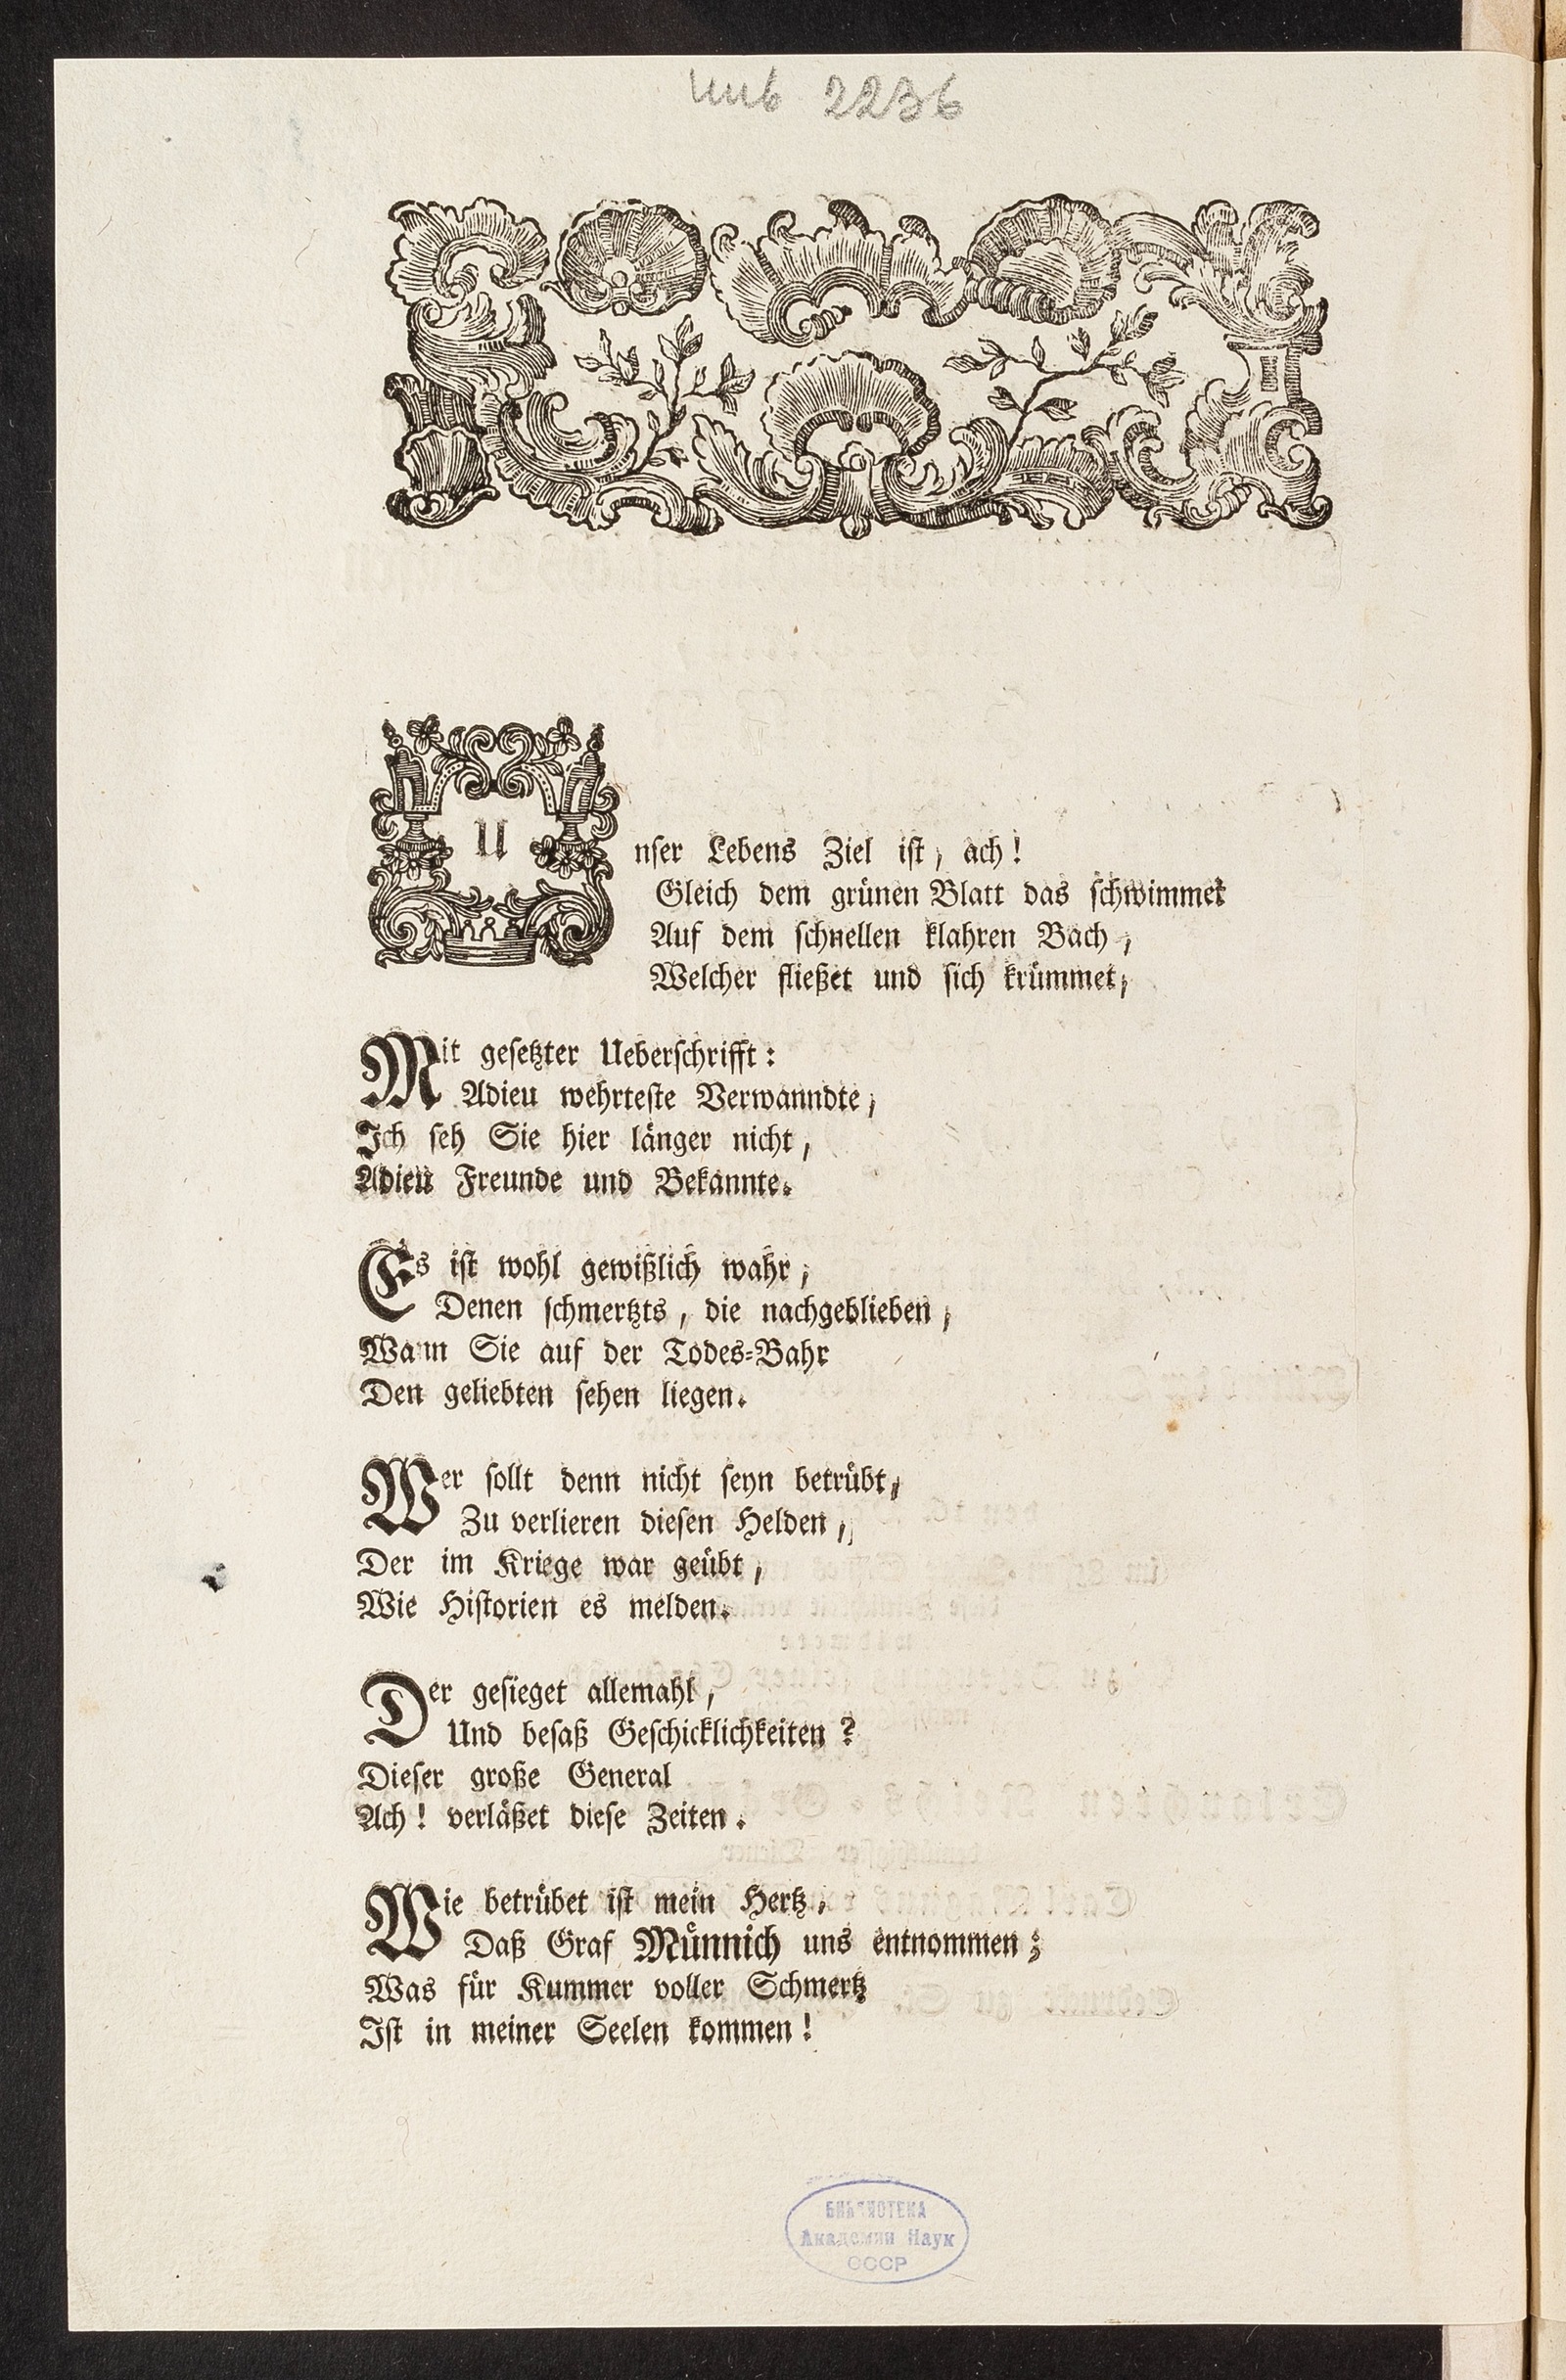 Инв 2236
Unser Lebens Ziel ist, ach!
Gleich dem grünen Blatt das schwimmet
Auf dem schnellen klahren Bach,
Welcher fließet und sich krümmet,
Mit gesetzter Ueberschrifft:
Adieu wehrteste Verwanndte,
Ich seh Sie hier länger nicht,
Adieu Freunde und Bekannte.
Es ist wohl gewißlich wahr,
Denen schmertzts, die nachgeblieben,
Wann Sie auf der Todes-Bahr
Den geliebten sehen liegen.
Wer sollt denn nicht seyn betrübt,
Zu verlieren diesen Helden,
Der im Kriege war geübt,
Wie Historien es melden.
Der gesieget allemahl,
Und besaß Geschicklichkeiten?
Dieser große General
Ach! verläßet diese Zeiten.
Wie betrübet ist mein Hertz,
Daß Graf Münnich uns entnommen;
Was für Kummer voller Schmertz
Ist in meiner Seelen kommen!
БИБЛИОТЕКА
Академии Наук
СССР